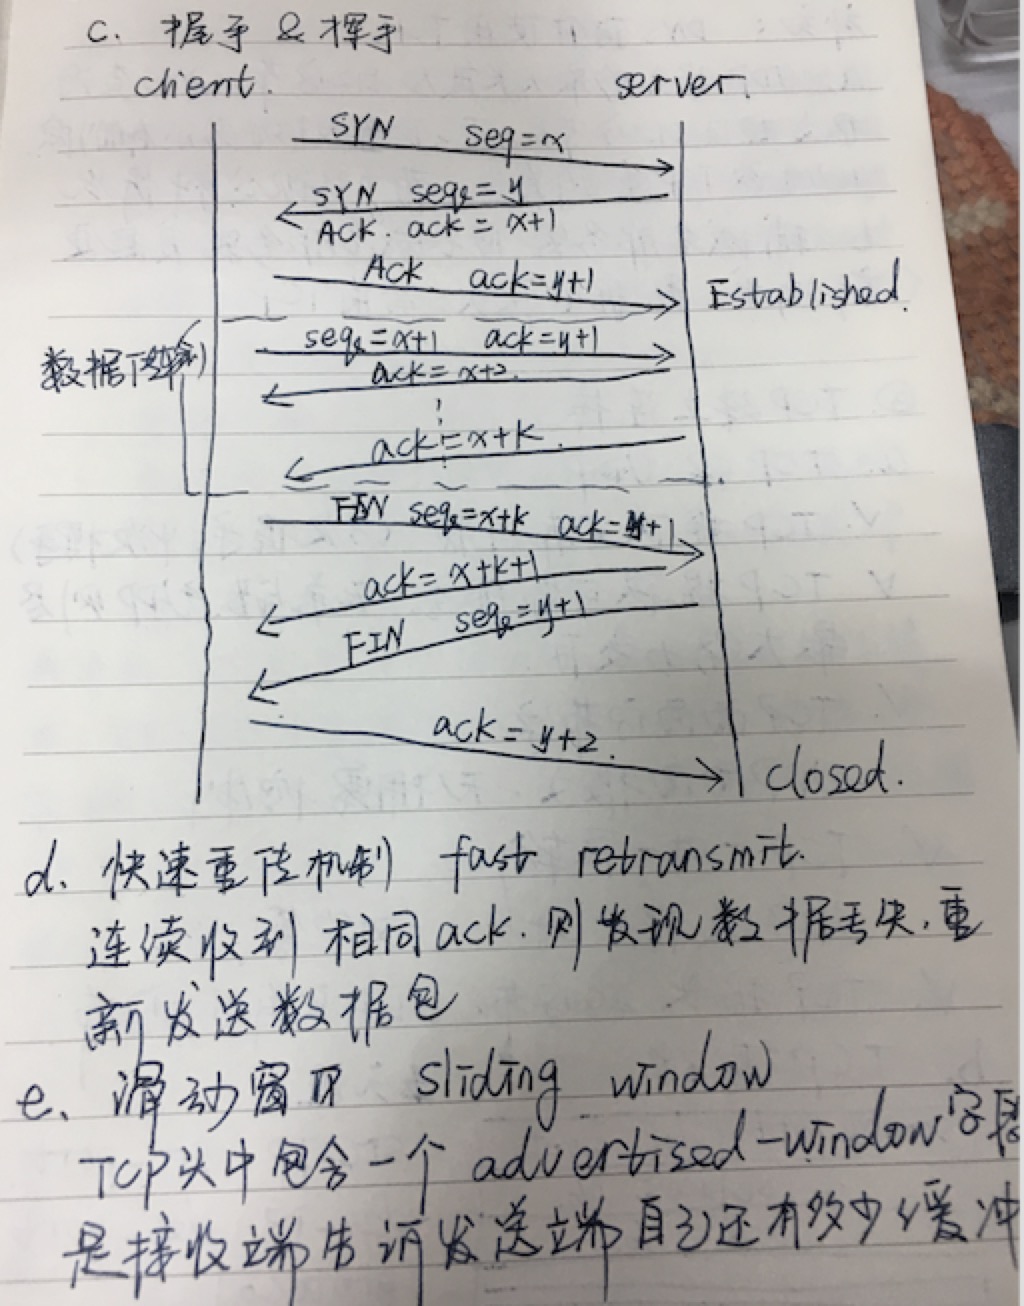 c. 握手 & 挥手
client. server.
SYN seq=x
SYN seq=y
ACK. ack=x+1
ACK ack=y+1
Established.
seq=x+1 ack=y+1
数据传输
ack=x+2.
ack=x+k.
FIN seq=x+k ack=y+1
ack=x+k+1
FIN seq=y+1
ack=y+2.
closed.
d. 快速重传机制 fast retransmit.
连续收到相同ack.则发现数据丢失.重
新发送数据包
e. 滑动窗口 sliding window
TCP头中包含一个 advertised-window字段
是接收端告诉发送端自己还有多少缓冲